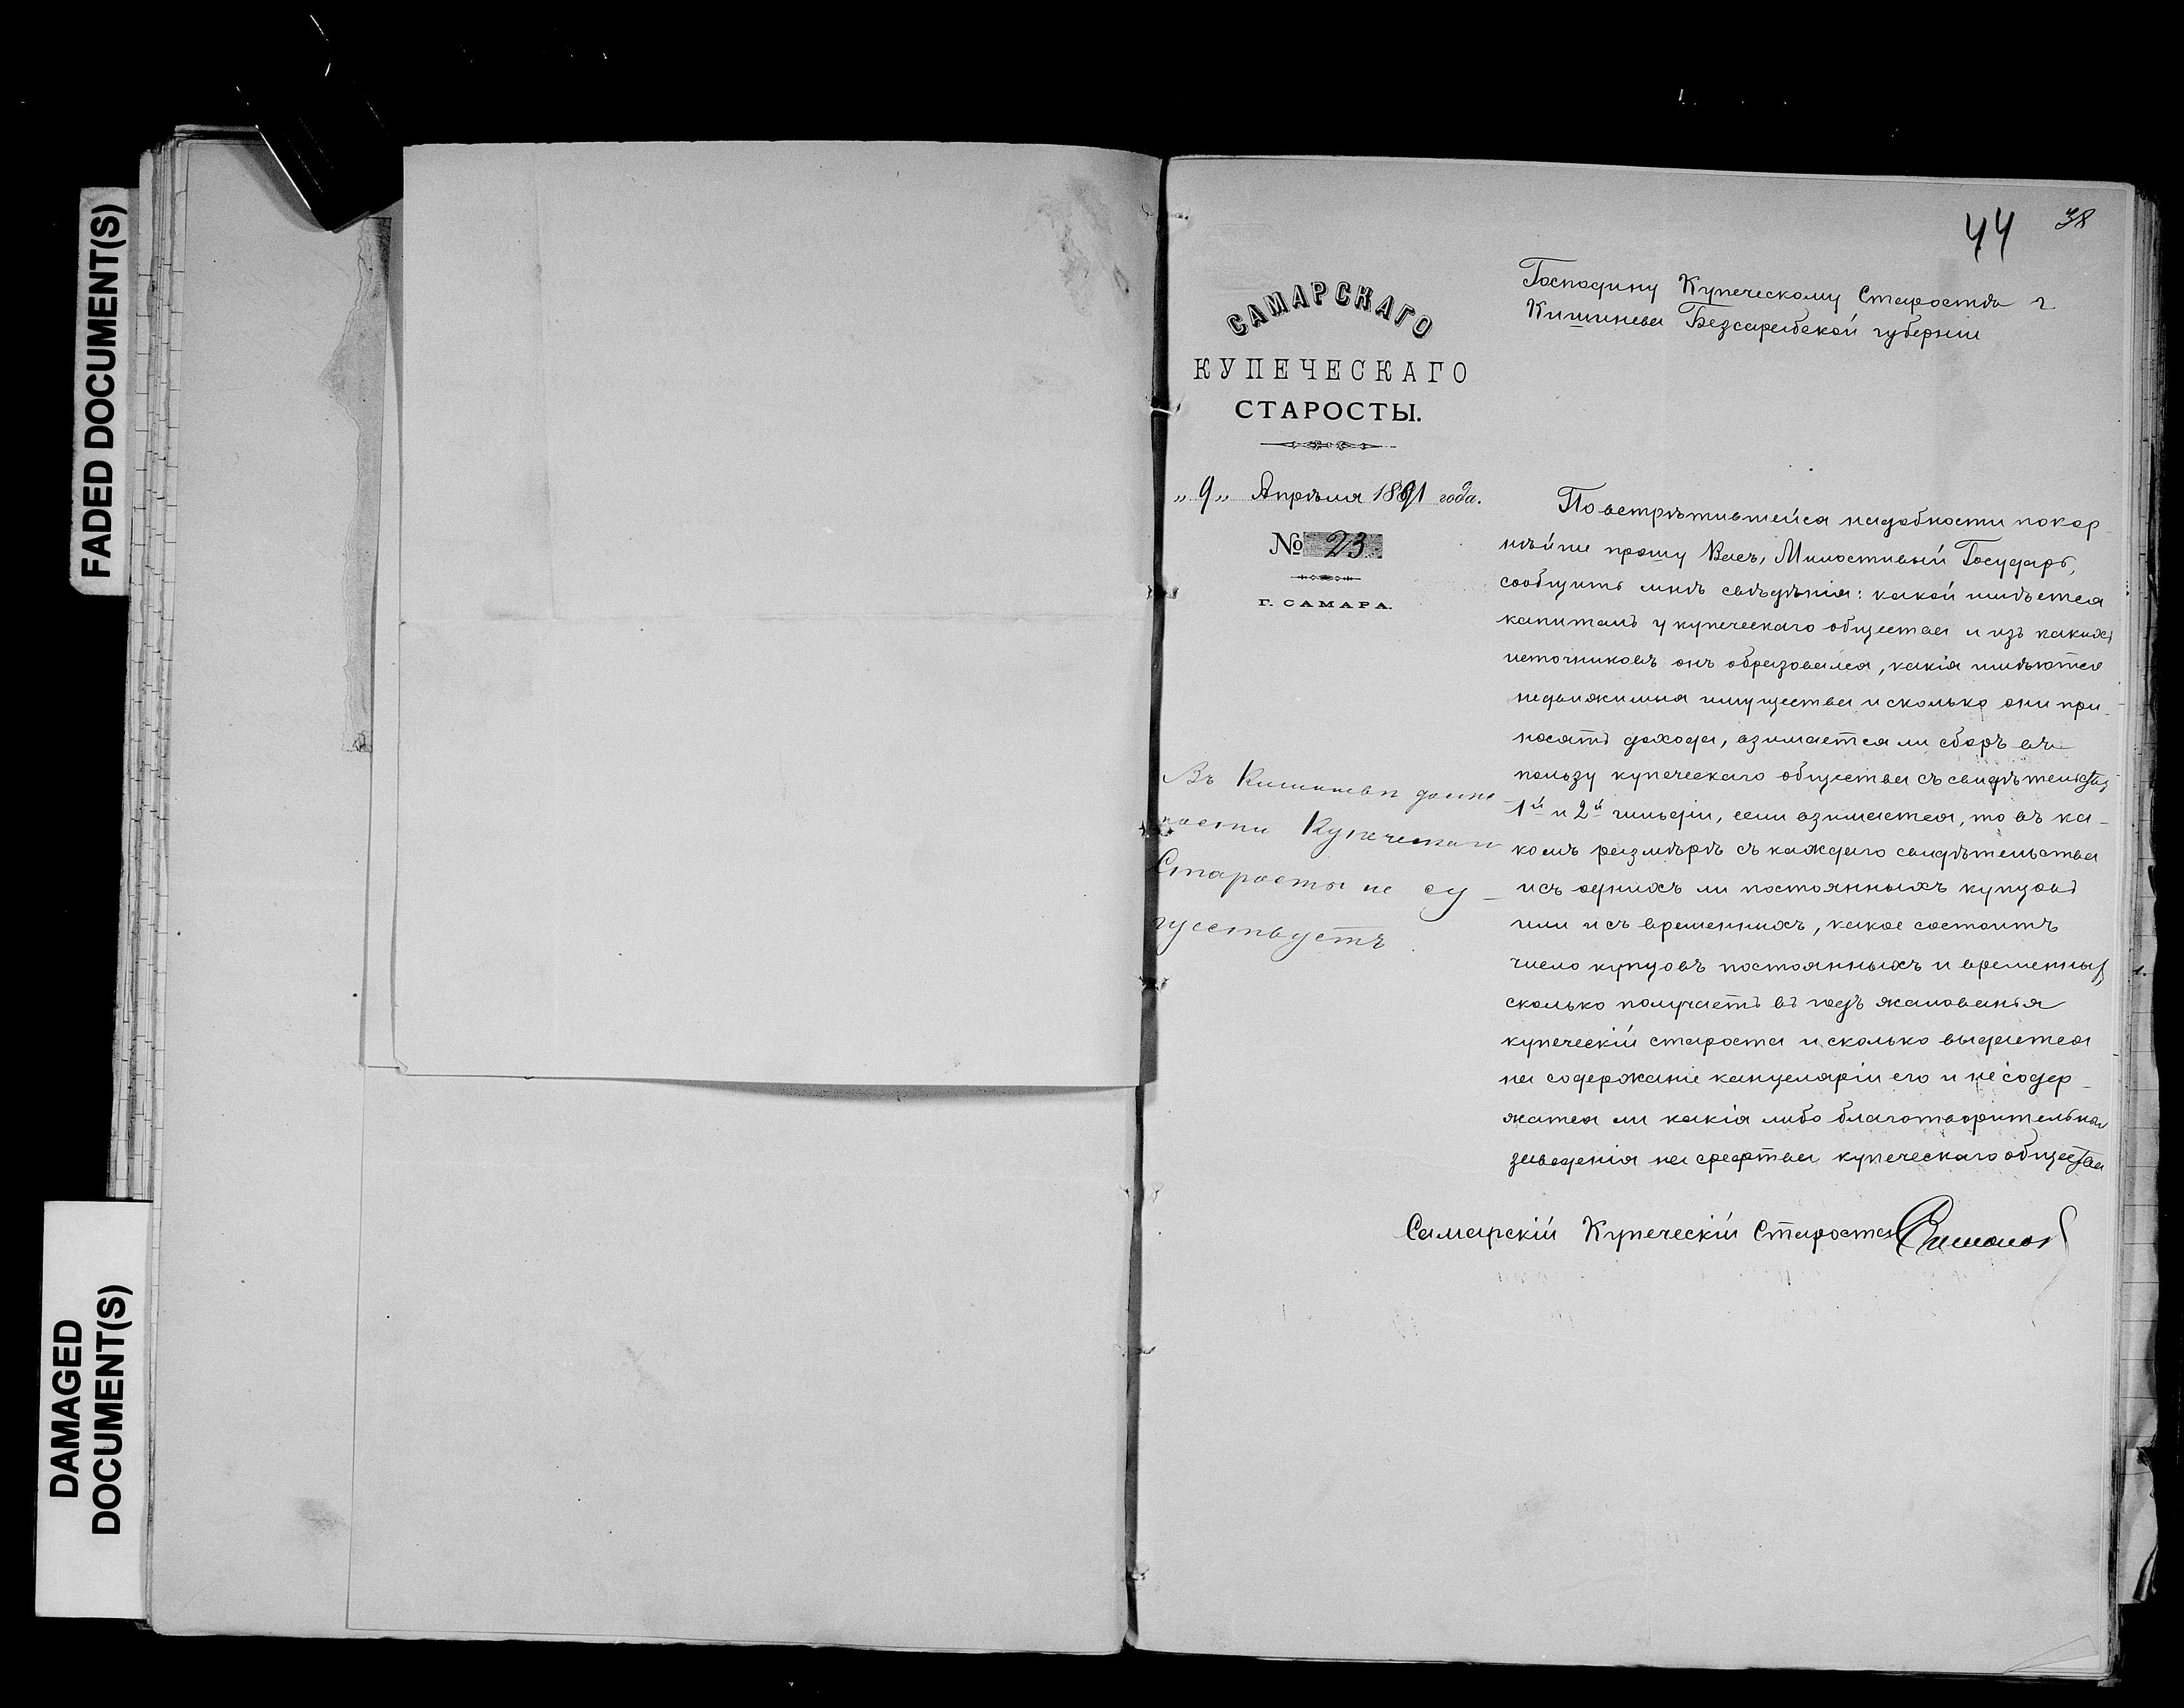 FADED DOCUMENT(S)
DAMAGED
DOCUMENT(S)
44 38
САМАРСКАГО
КУПЕЧЕСКАГО
СТАРОСТЫ.
„9„ Апрѣля 1891 года.
№ 23.
Г. САМАРА.
Господину Купеческому Старостѣ г.
Кишинева Безсарабской губерніи
По встрѣтившейся надобности покор-
нѣйше прошу Васъ, Милостивый Государь,
сообщить мнѣ свѣдѣнія: какой имѣется
капиталъ у купеческаго общества и изъ какихъ
источниковъ онъ образовался, какія имѣются
недвижимыя имущества и сколько они при-
носятъ дохода, взимается ли сборъ въ
пользу купеческаго общества съ свидѣтельствъ
1й и 2й гильдіи, если взимается, то въ ка-
комъ размѣрѣ съ каждаго свидѣтельства
и съ однихъ ли постоянныхъ купцовъ
или и съ временныхъ, какое состоитъ
число купцовъ постоянныхъ и временныхъ,
сколько получаетъ въ годъ жалованья
купеческій староста и сколько выдается
на содержаніе канцеляріи его и не содер-
жатся ли какія либо благотворительныя
заведенія на средства купеческаго общества
Самарскій Купеческій Староста
Въ Кишиневѣ долж
ности Купеческаго
Старосты не су-
ществуетъ.